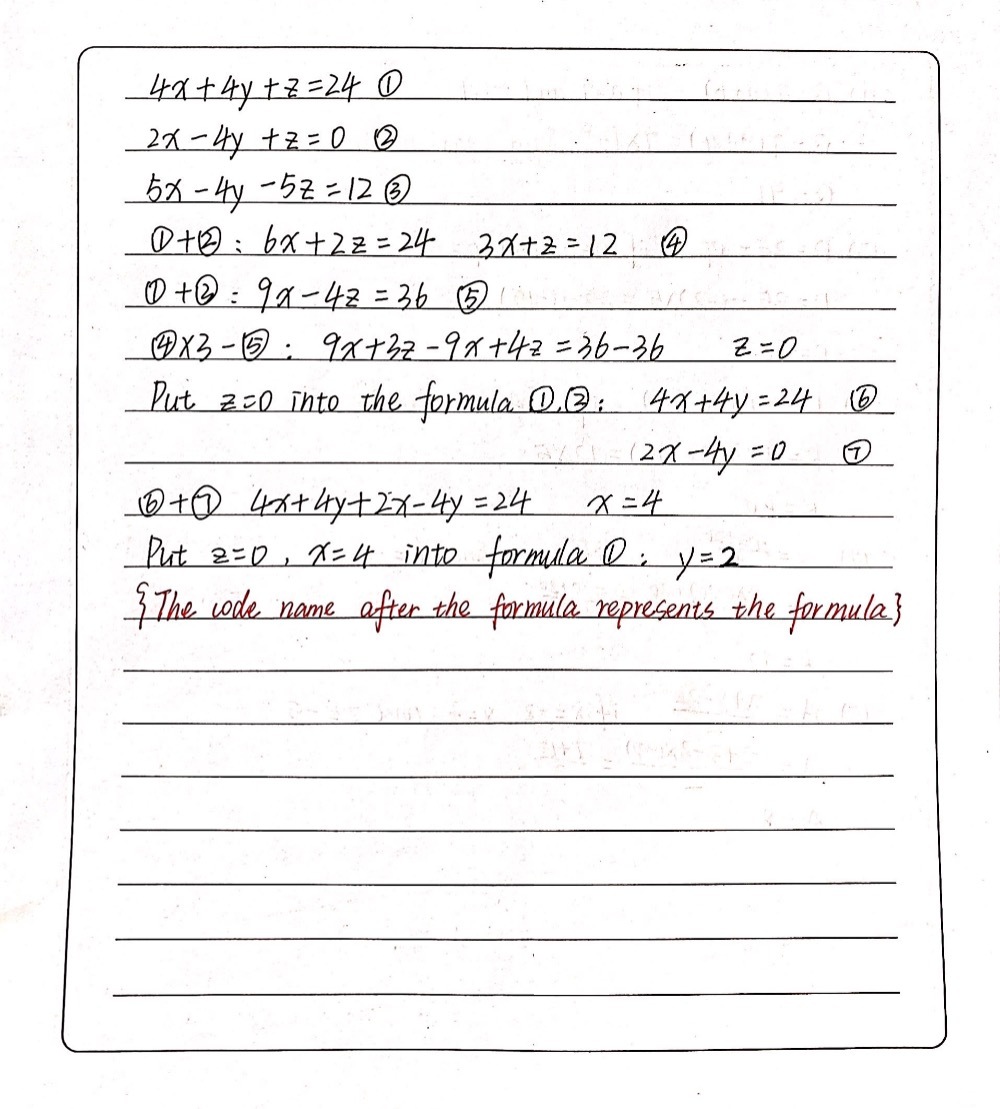 4x+4y+z=24 ①
2x-4y+z=0 ②
5x-4y-5z=12 ③
①+②: 6x+2z=24 3x+z=12 ④
①+③: 9x-4z=36 ⑤
④×3-⑤: 9x+3z-9x+4z=36-36 z=0
Put z=0 into the formula ①,②: 4x+4y=24 ⑥
2x-4y=0 ⑦
⑥+⑦ 4x+4y+2x-4y=24 x=4
Put z=0, x=4 into formula ①: y=2
{The code name after the formula represents the formula}